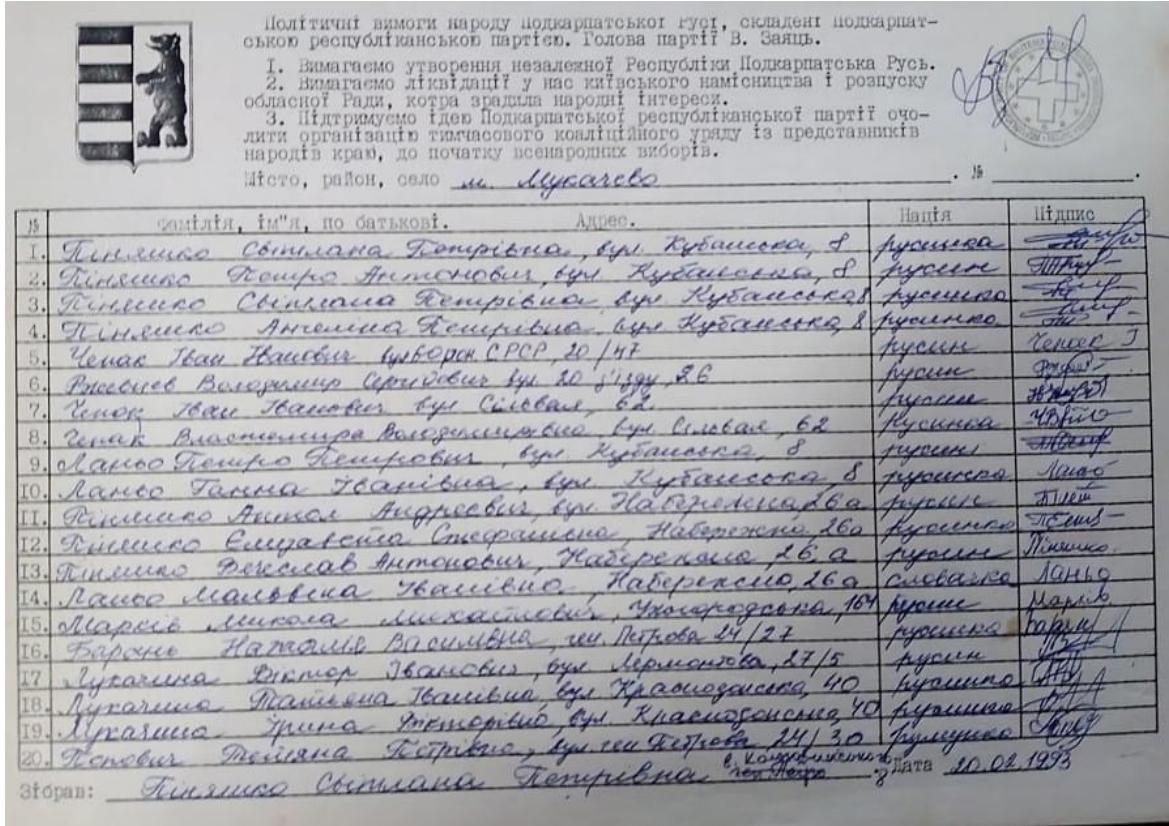 Політичні вимоги народу Подкарпатської Русі, складені Подкарпат-
ською республіканською партією. Голова партії В. Заяць.
I. Вимагаємо утворення незалежної Республіки Подкарпатська Русь.
2. Вимагаємо ліквідації у нас київського намісництва і розпуску
обласної Ради, котра зрадила народні інтереси.
3. Підтримуємо ідею Подкарпатської республіканської партії очо-
лити організацію тимчасового коаліційного уряду із представників
народів краю, до початку всенародних виборів.
Місто, район, село м. Мукачево . №
№ Фамілія, ім"я, по батькові. Адрес. Нація Підпис
I. Піняшко Світлана Петрівна, вул. Кубанська, 8 русинка
2. Піняшко Петро Антонович, вул. Кубанська, 8 русин
3. Піняшко Світлана Петрівна вул Кубанська 8 русинка
4. Піняшко Ангеліна Петрівна, вул Кубанська, 8 русинка
5. Чепак Іван Іванович СРСР, 20/47 русин Чепак І
6. Володимир Сергійович вул. 20 з'їзду, 26 русин
7. Чепак Іван Іванович вул 62 русин
8. Чепак Володимирівна, вул. 62 русинка
9. Ланьо Петро Петрович, вул. Кубанська, 8 русин
I0. Ланьо Ганна Іванівна, вул. Кубанська, 8 русинка Ланьо
II. Піняшко Антон Андрєєвич, вул. Набережна, 26а русин
I2. Піняшко Єлизавета Стефанівна Набережна, 26а русинка
I3. Піняшко Вечеслав Антонович, Набережна, 26, а русин Піняшко
I4. Ланьо Мальвіна Іванівна, Набережна, 26а словачка Ланьо
I5. Марків Микола Михайлович, Ужгородська, 164 русин Марків
I6. Наталія Василівна, ген. Петрова 24/27 русинка
I7 Лукачина Віктор Іванович, вул Лермонтова, 27/5 русин
I8. Лукачина Татіяна Іванівна, вул Краснодонська, 40 русинка
I9. Лукачина Ірина Вікторівна, вул. Краснодонська, 40 русинка
20. Попович Тетяна Петрівна, вул. ген Петрова 24/30
Зібрав: Піняшко Світлана Петрівна Дата 20.02.1993